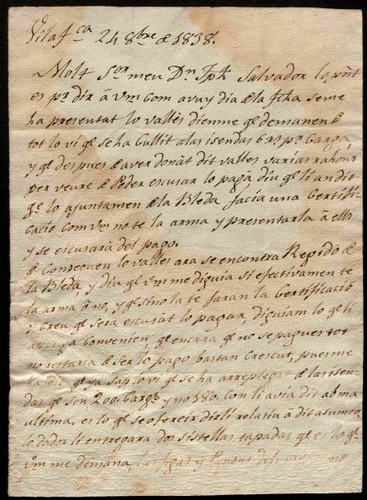 Vilafca 24 8bre de 1838.
Molt Sor meu Dn Jph Salvador lo pñt
es pa dir a Vm com avuy dia de la fcha se me
ha presentat lo valles dienme qe demanen de
tot lo vi qe se ha Cullit a las isendas
y qe despues de aver donat dit valles varias rahons
per veure de Poder escusar lo paga diu qe li an dit
qe lo ajuntamen de la Bleda facia una Certifi-
cacio com Vm no te la arma y presentarla a ells
y se escusara del pago.
de Consequen lo valles ara se encontra Regido de
la Bleda, y diu qe Vm me diguia si efectivamente
la arma o no, y qe sino la te faran la Certificació
y creu qe sera escusat lo pagar, diguiam lo qe li
convenien, qe encara qe no se pagues tot
no restaria de ser lo pago bastan Crescut, puer me
ha dit qe ya sap lo vi qe se ha arreplegat de las isen-
das qe son 200 Cargs y no 180. con li avia dit
ultima, es lo qe se ofereix dirli relatiu a dit asumto,
lo dador li entregara dos sistellas tapadas qe es lo qe
Vm me demana, las figas y